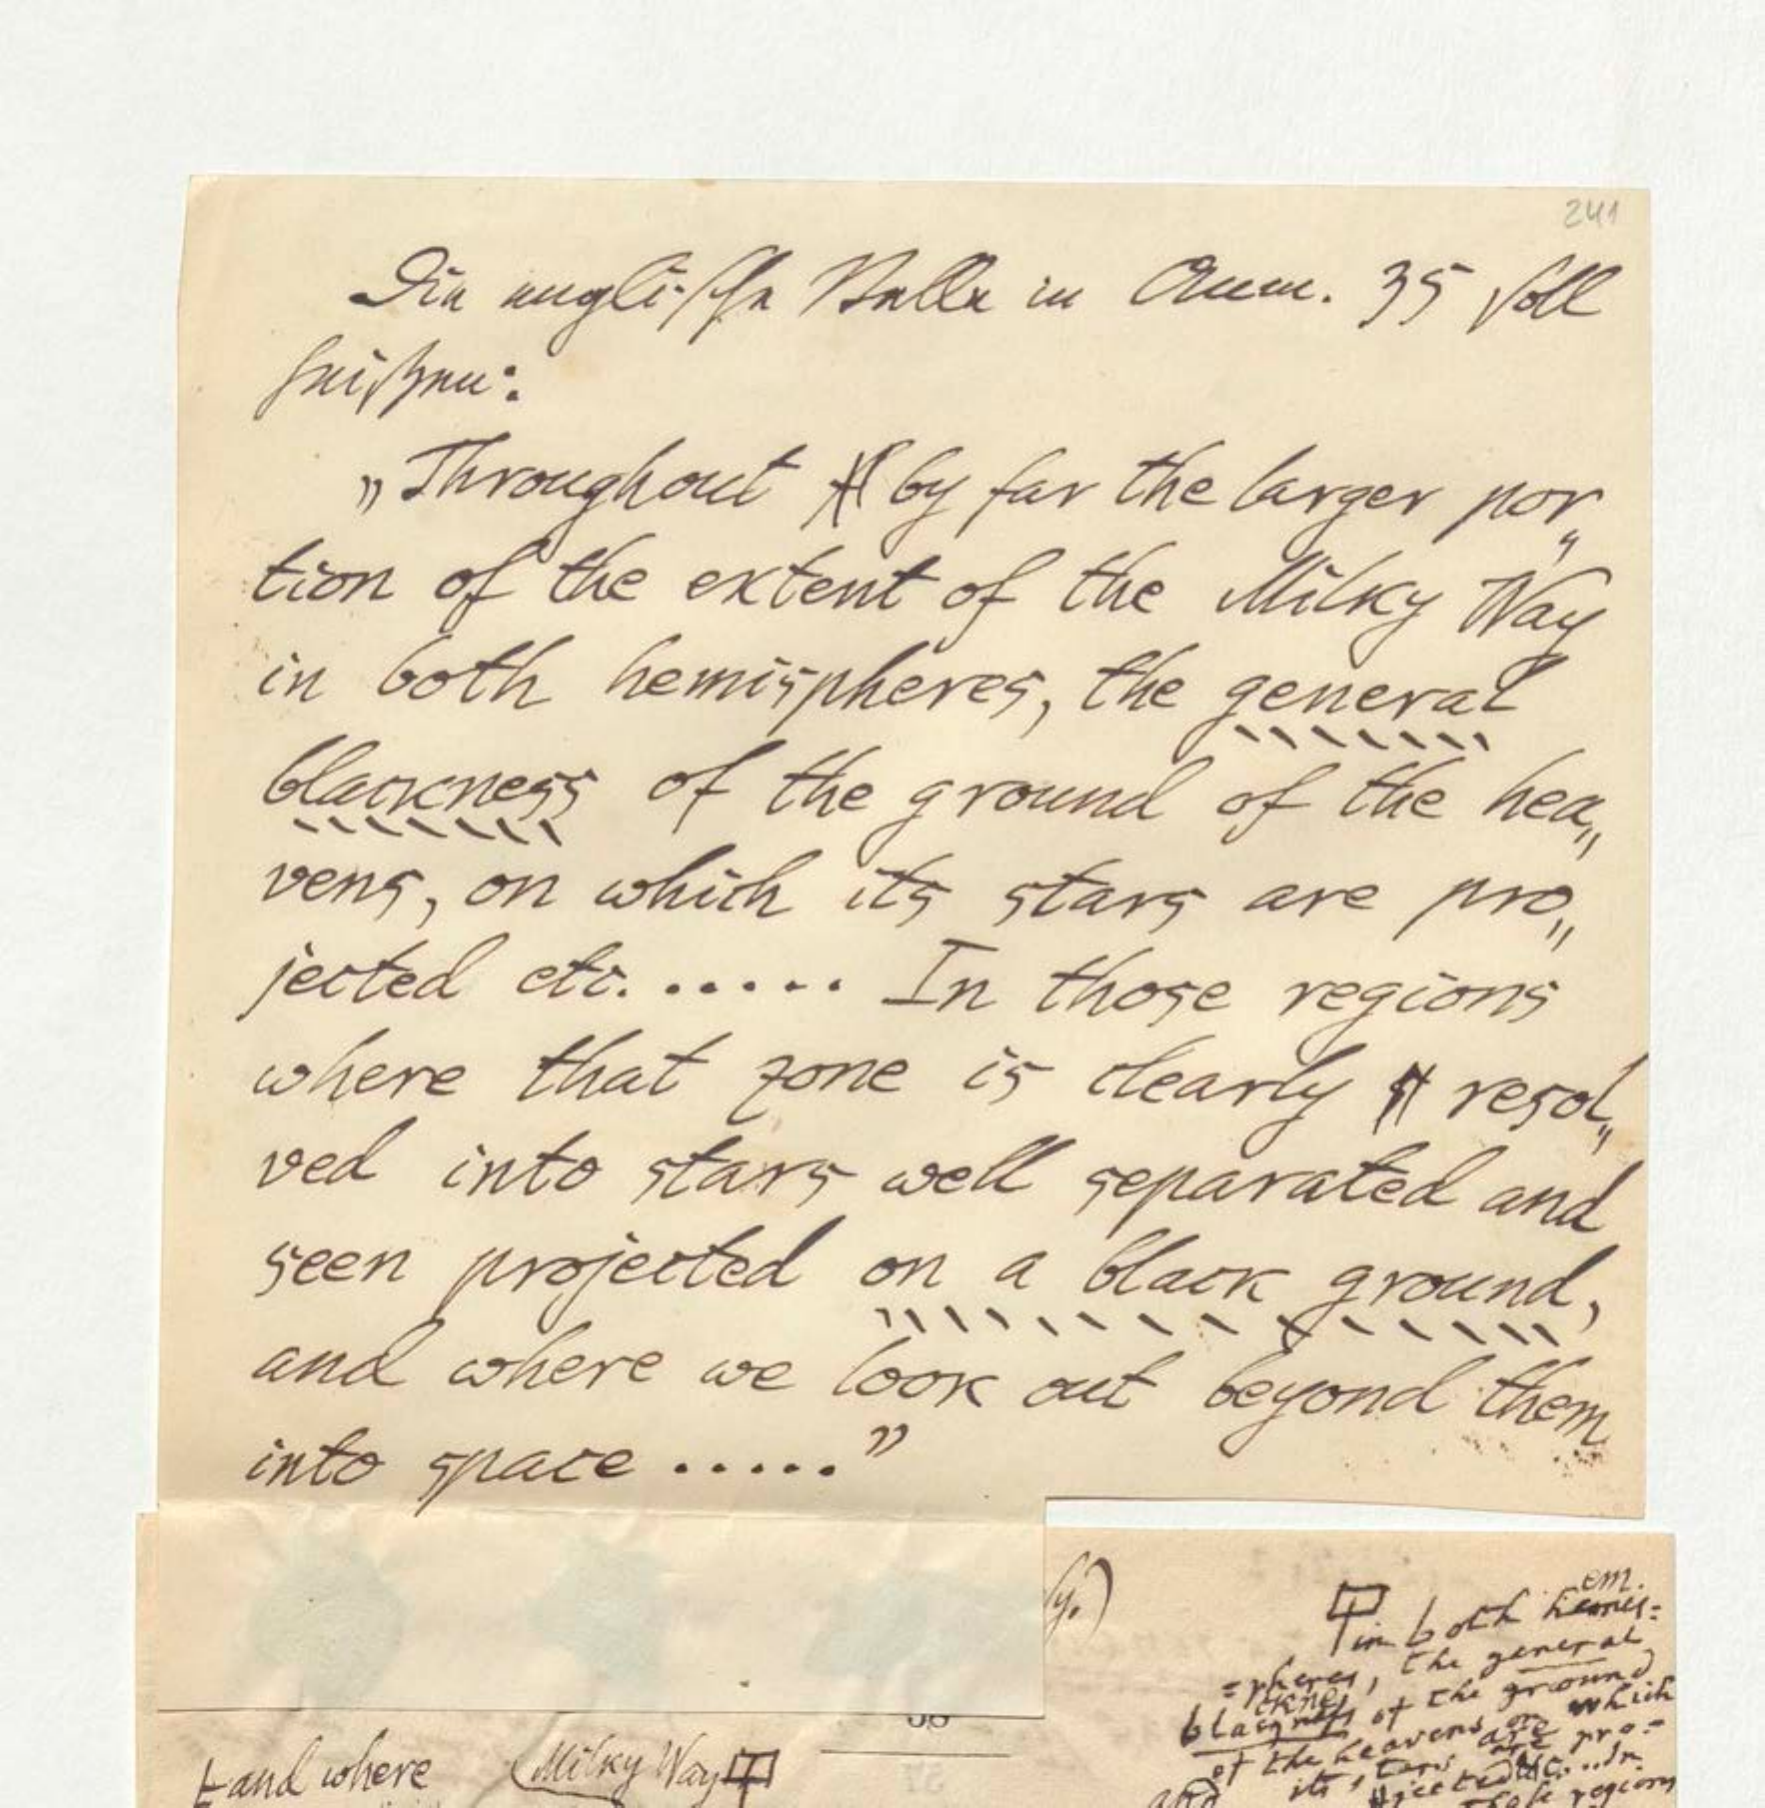 241
Die englische Stelle in Anm. 35 soll
heißen:
„Throughout by far the larger por„
tion of the extent of the Milky Way
in both hemispheres, the general
blackness of the ground of the hea„
vens, on which its stars are pro„
jected etc. ..... In those regions
where that zone is clearly resol„
ved into stars well separated and
seen projected on a black ground,
and where we look out beyond them
into space ....."
y.)
em.
in both
=spheres, the general
ckne
of the ground
of the heavens on which
its stars are pro=
jected etc...In
those regions
and
and where Milky Way